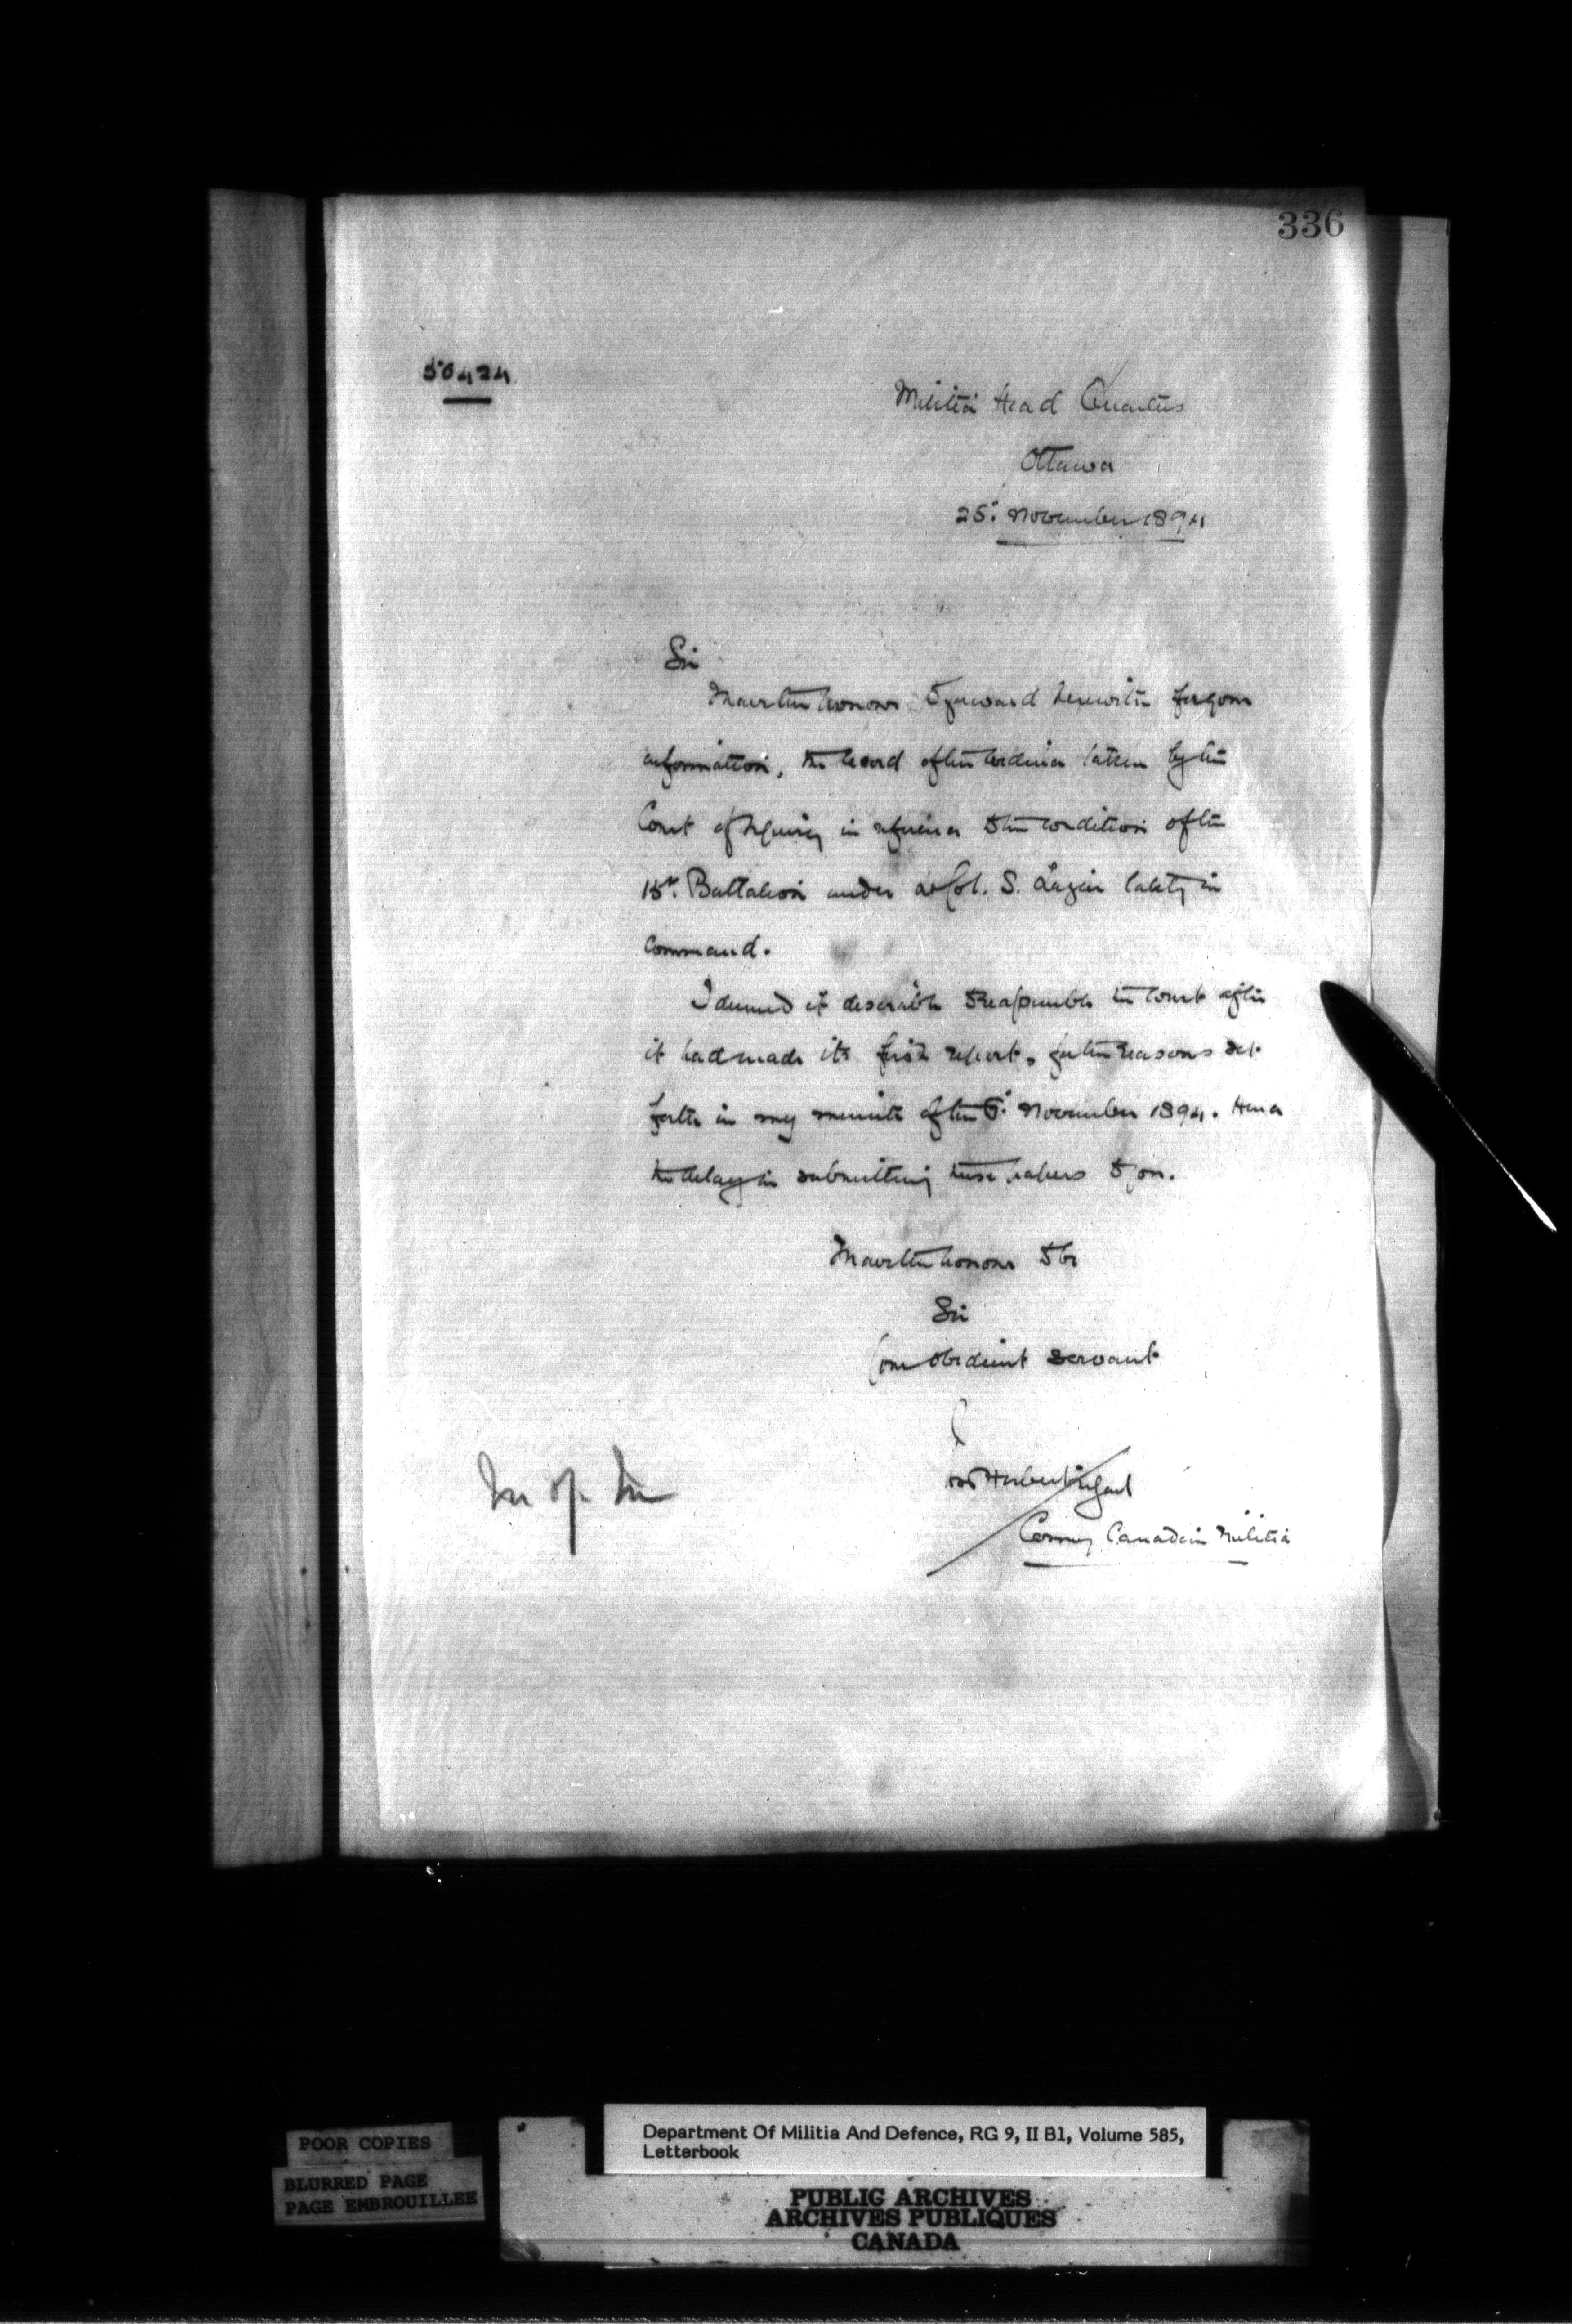 336
50424
Militia Head Quarters
Ottawa
25. November 1894
Sir
I have the honour to forward herewith for your
information, the record of the evidence taken by the
Court of Inquiry in reference to the condition of the
15th. Battalion under Lt Col. S. Lazier lately in
command.
I deemed it desirable to reassemble the Court after
it had made its first report, for the reasons set
forth in my minute of the November 1894. Hence
the delay in submitting these papers to you.
I have the honour to be
Sir
Your obedient servant
Herbert
Commg Canadian Militia
M of M
Department Of Militia And Defence, RG 9, II B1, Volume 585,
Letterbook
POOR COPIES
BLURRED PAGE
PAGE EMBROUILLEE
PUBLIC ARCHIVES
ARCHIVES PUBLIQUES
CANADA